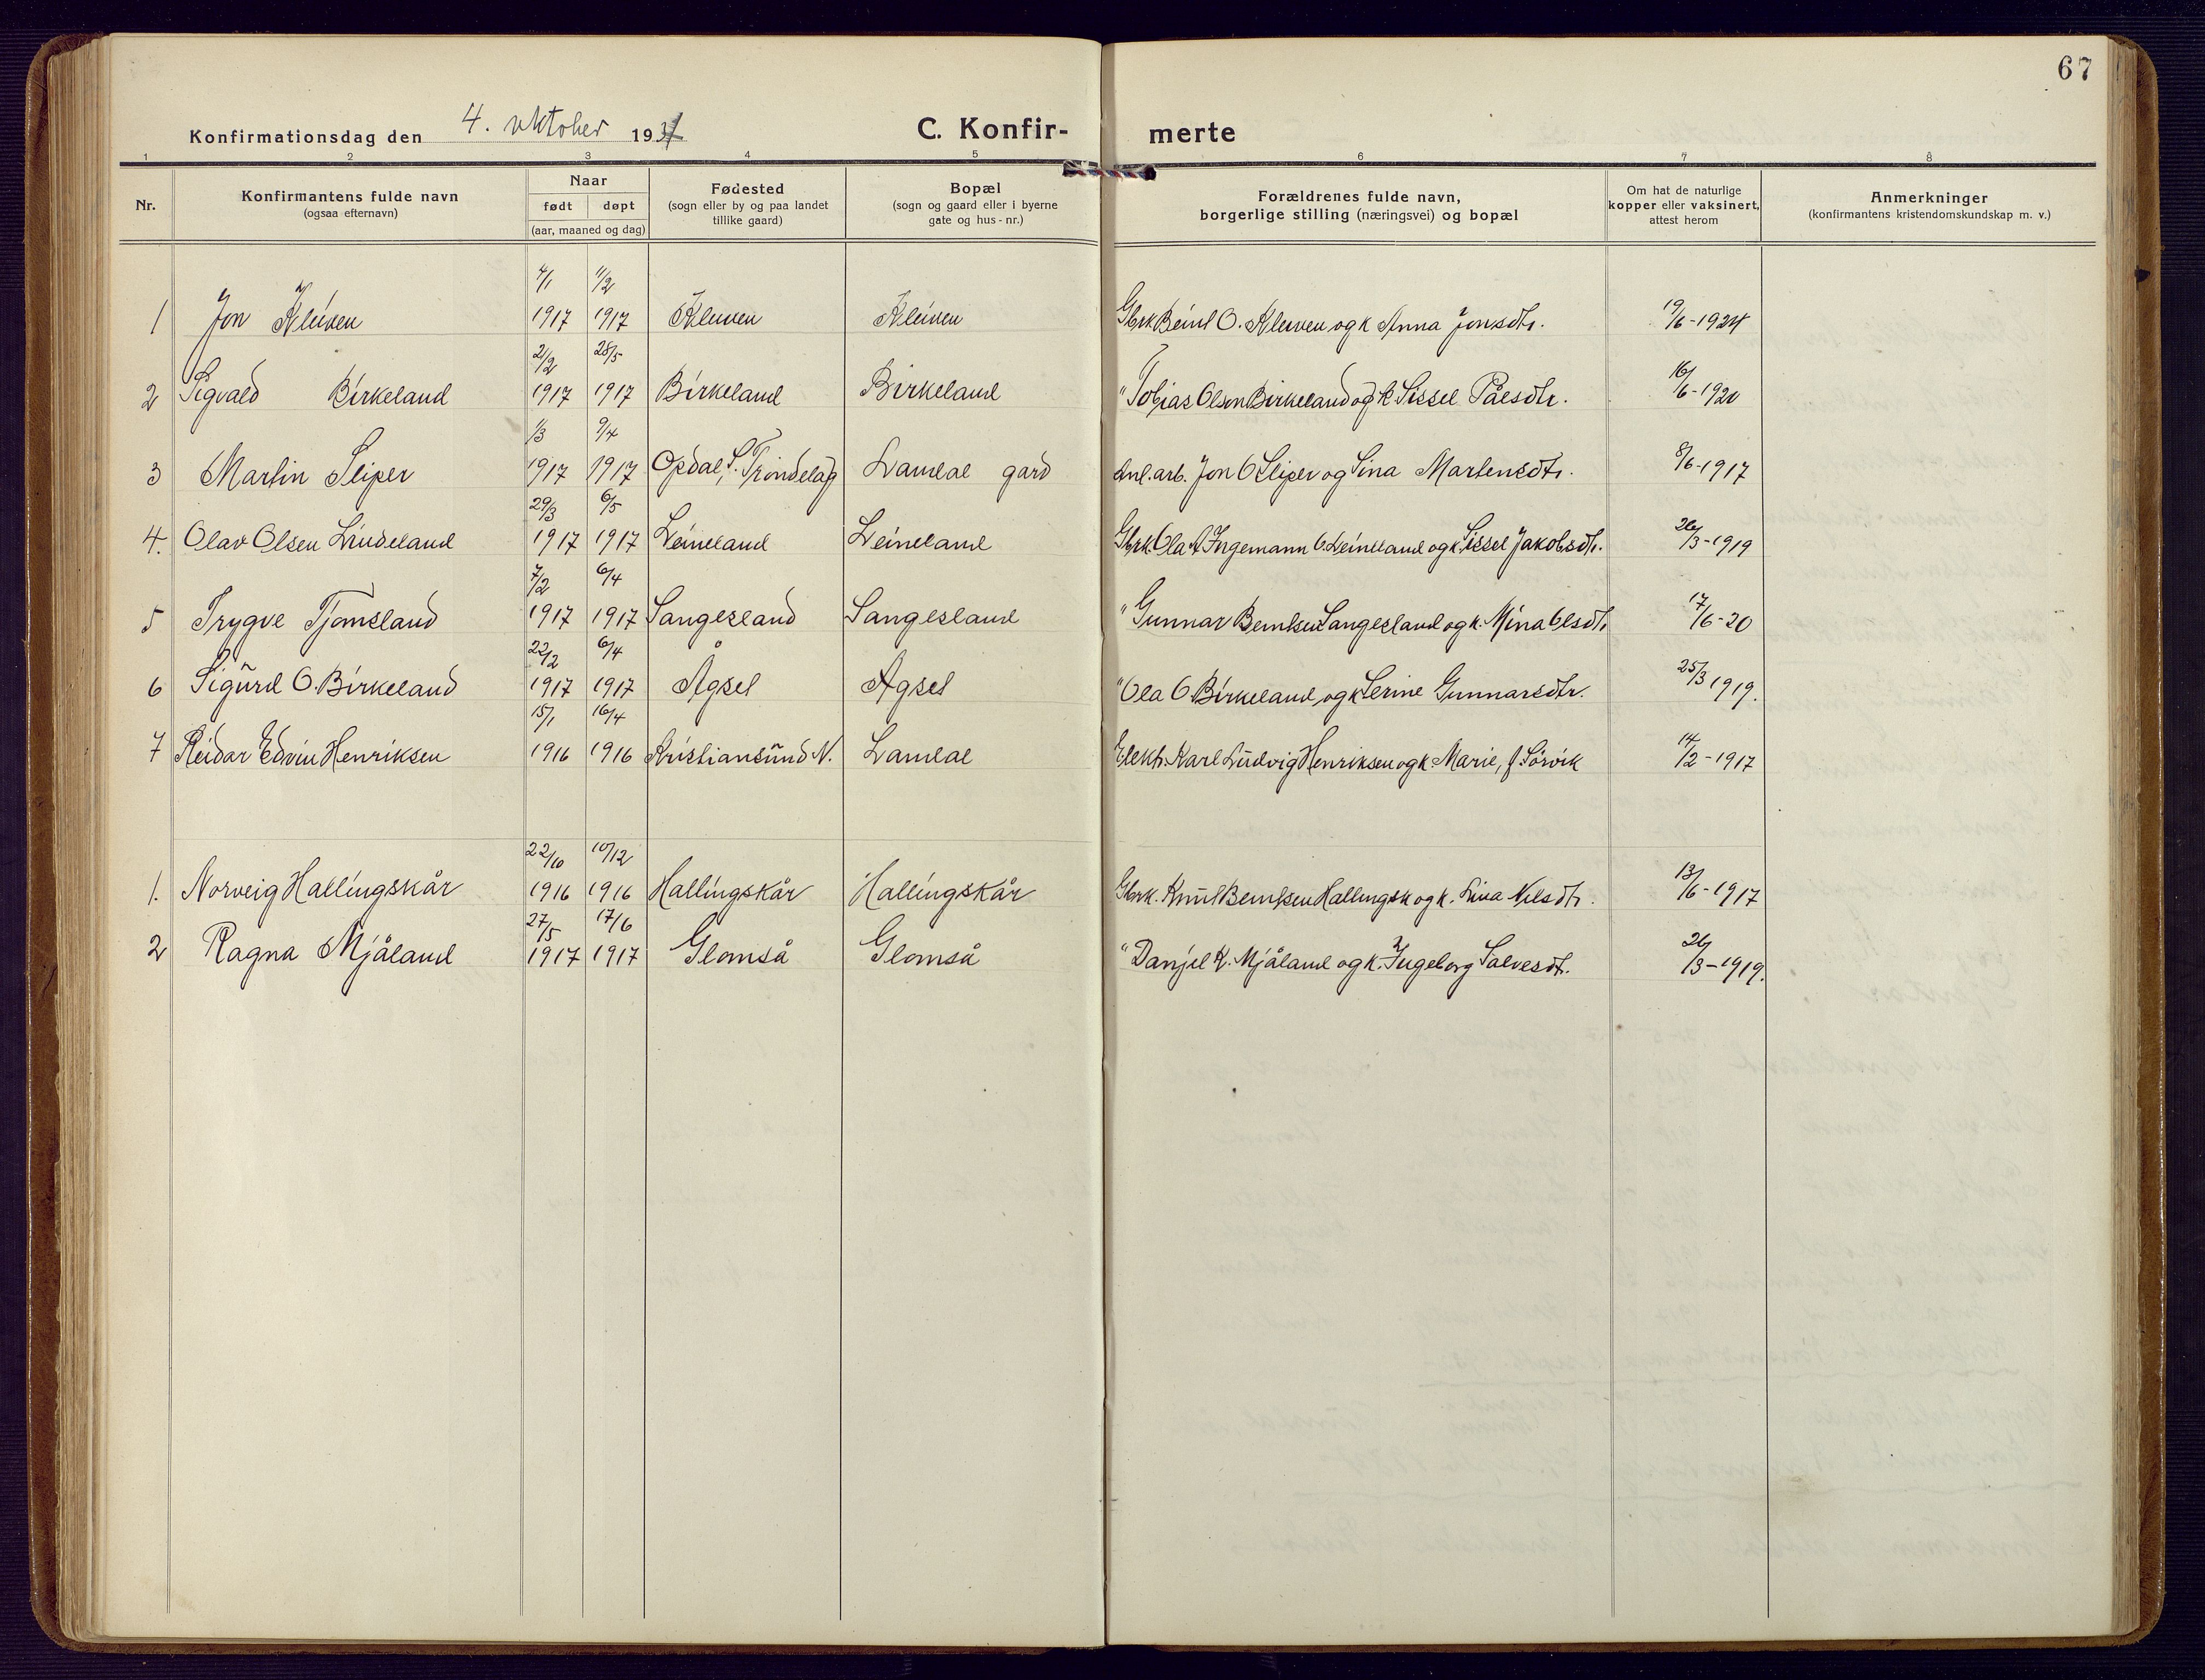 67
Konfirmationsdag den 4. oktober 1931
C. Konfir- merte
1 2 3 4 5 6 7 8
Nr. Konfirmantens fulde navn (ogsaa efternavn) Naar født døpt (aar, maaned og dag) Fødested (sogn eller by og paa landet tillike gaard) Bopæl (sogn og gaard eller i byerne gate og hus-nr.) Forældrenes fulde navn, borgerlige stilling (næringsvei) og bopæl Om hat de naturlige kopper eller vaksinert, attest herom Anmerkninger (konfirmantens kristendomskundskap m. v.)
1 Jon Kleiven 4/1 1917 11/2 1917 Kleiven Kleiven Gbrk Beint O. Kleiven og k Anna Jonsdtr. 19/6-1924
2 Sigvald Birkeland 21/2 1917 28/5 1917 Birkeland Birkeland " Tobias Olsen Birkeland og k Sissel Pålsdtr. 16/6-1920
3 Martin Sliper 1/3 1917 9/4 1917 Opdal, S. Trøndelag gard Anl. arb. Jon O Sliper og Sina Martensdtr. 8/6-1917
4. Olav Olsen Lindeland 29/3 1917 6/5 1917 Leineland Leineland Gbrk. Ola A Ingemann O Leineland og k. Sissel Jakobsdtr. 26/3-1919
5 Trygve Tjomsland 7/2 1917 6/4 1917 Sangesland Sangesland " Gunnar Berntsen Sangesland og k. Mina Olsdtr 17/6-20
6 Sigurd O. Birkeland 22/2 1917 6/4 1917 Ågsel Agsel " Ola O. Birkeland, og k Serine Gunnarsdtr. 25/3 1919.
7 Reidar Edvin Henriksen 15/1 1916 16/4 1916 Kristiansund N. Elektr. Karl Ludvig Henriksen og k Marie, f Sörvik 14/2-1917
1. Norveig Hallingskår 22/10 1916 10/12 1916 Hallingskår Hallingskår Gbrk. Knut Berntsen Hallingsk og k. Lina Nilsdtr. 13/6-1917
2 Ragna Mjåland 27/5 1917 17/6 1917 Glomså Glomså " Danjel K. Mjåland og k. Ingeborg Salvesdt. 26/3-1919.